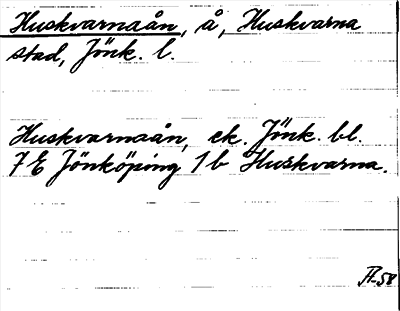 Huskvarnaån, å, Huskvarna
stad, Jönk. l.
Huskvarnaån, ek. Jönk. bl.
7E Jönköping 1b Huskvarna.